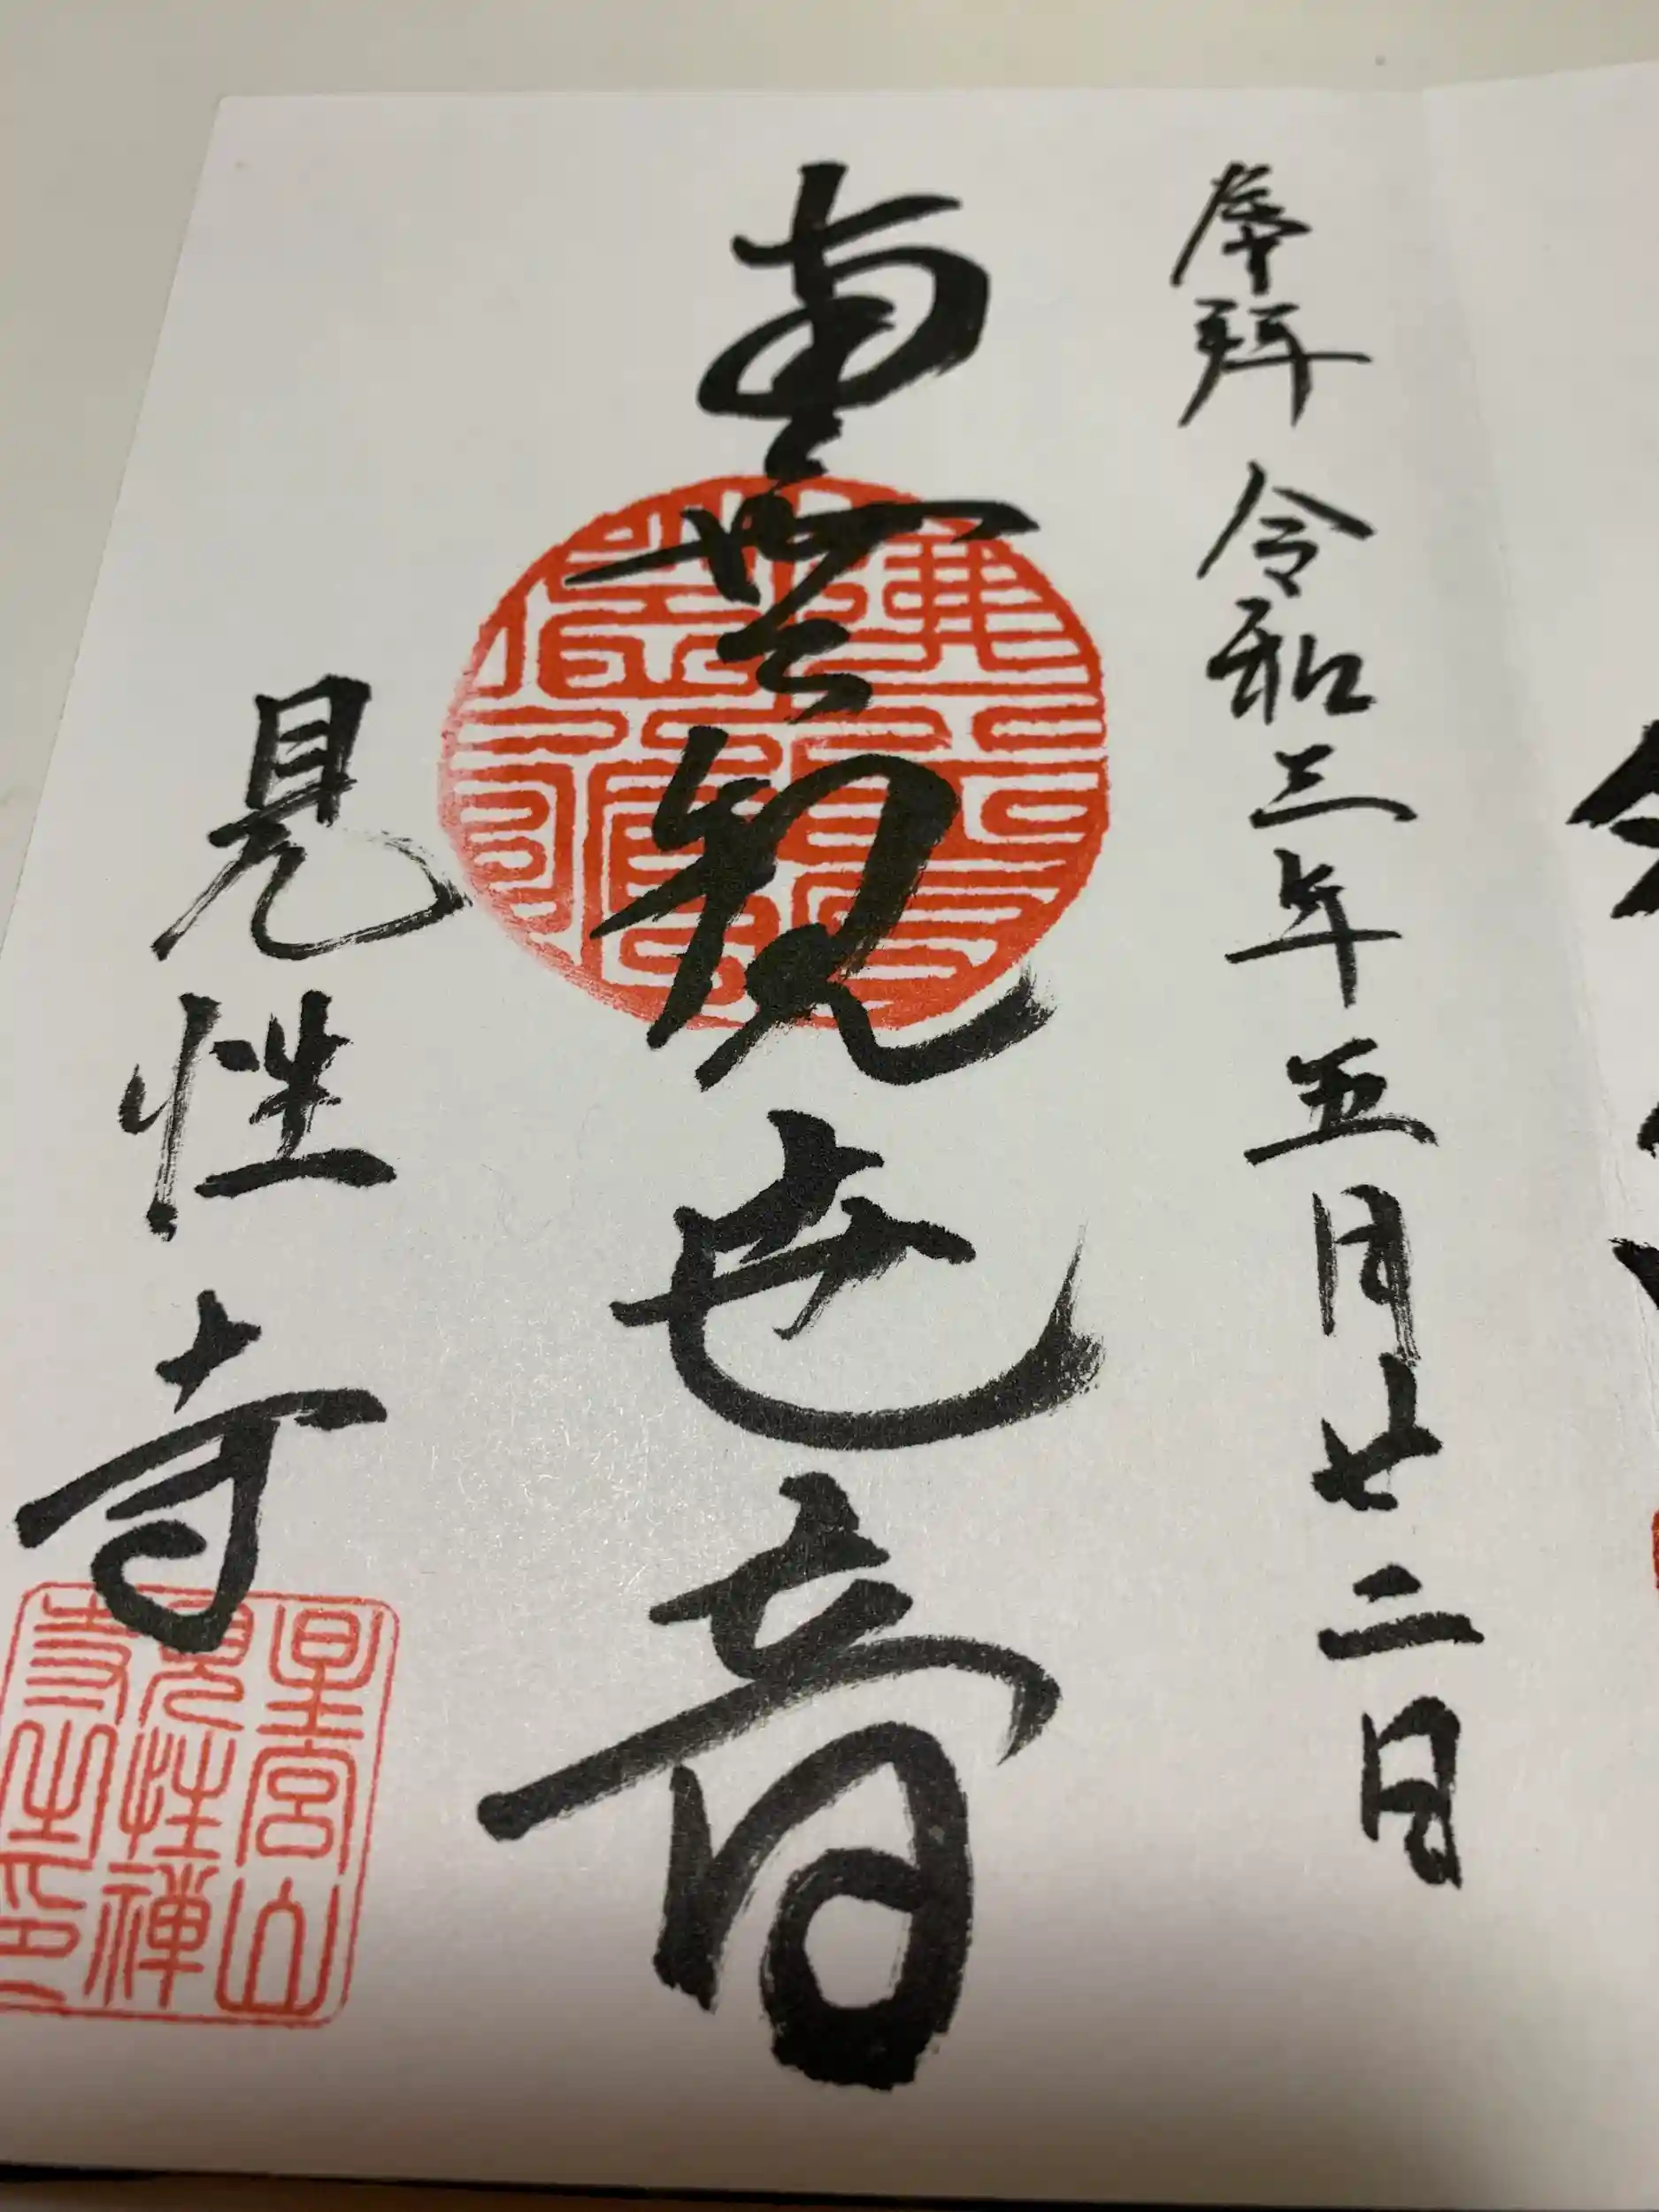 奉拝 令和三年五月廿二日
南無観世音
見性寺
星宮山
見性禅
寺之印